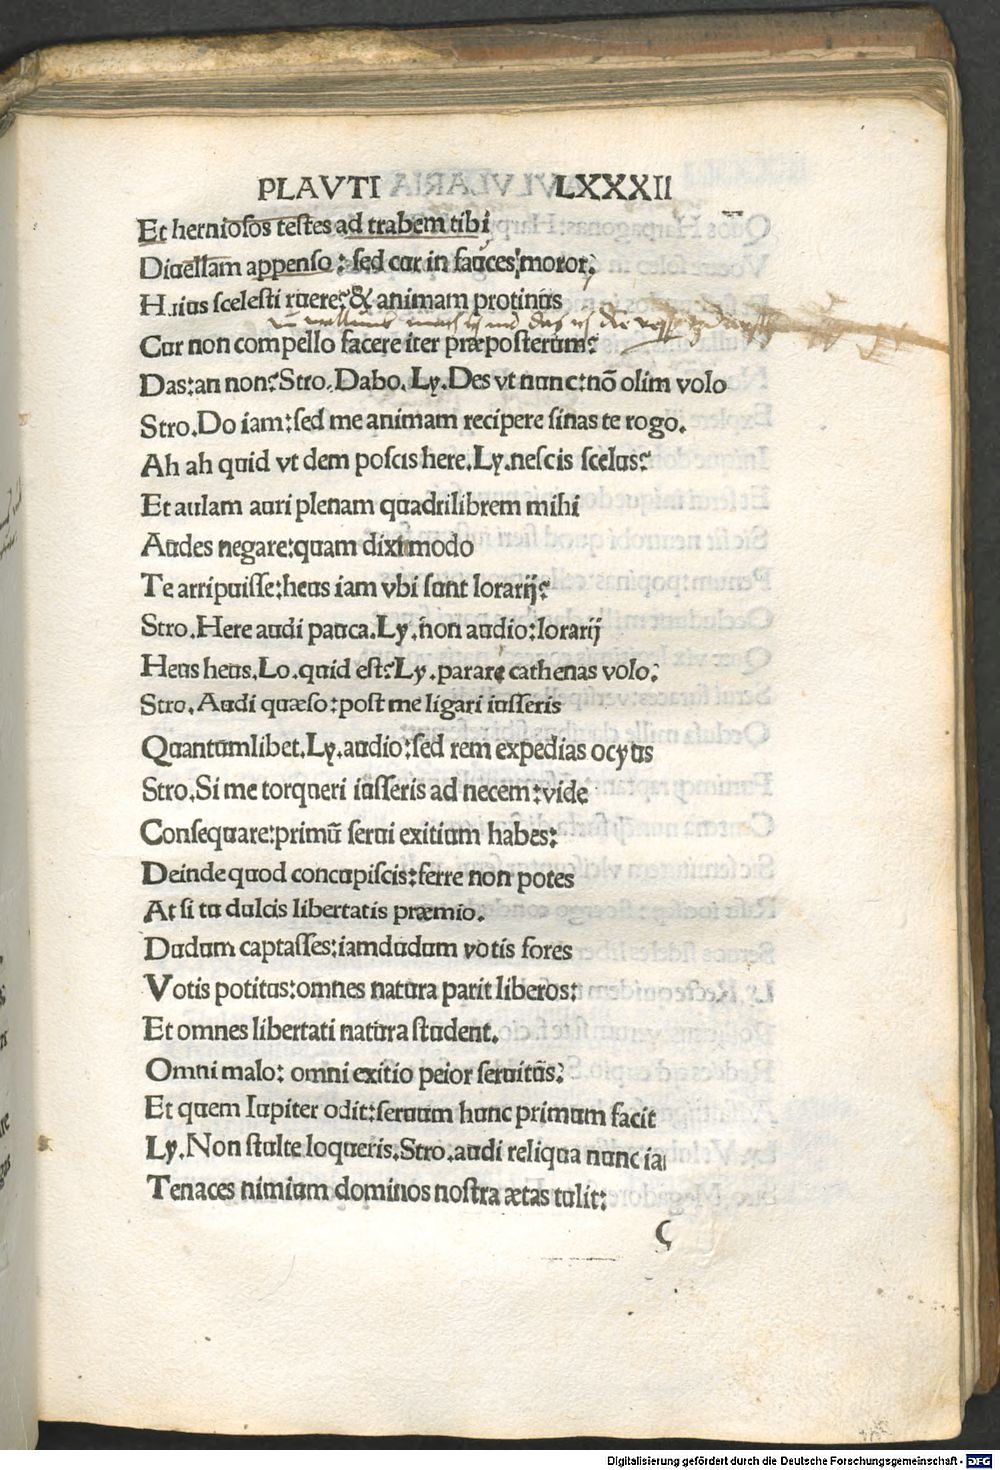 PLAVTI LXXXII
Et herniosos testes ad trabem tibi
Diuellam appenso: sed cur in fauces moror?
Huius scelesti ruere? & animam protinus
Cur non compello facere iter præposterum?
Das: an non? Stro. Dabo. Ly. Des vt nunc: nō olim volo
Stro. Do iam: sed me animam recipere sinas te rogo.
Ah ah quid vt dem poscis here. Ly. nescis scelus?
Et aulam auri plenam quadrilibrem mihi
Audes negare: quam dixti modo
Te arripuisse: heus iam vbi sunt lorarij?
Stro. Here audi pauca. Ly. non audio: lorarij
Heus heus. Lo. quid est? Ly. parare cathenas volo:
Stro. Audi quæso: post me ligari iusseris
Quantumlibet. Ly. audio: sed rem expedias ocyus
Stro. Si me torqueri iusseris ad necem: vide
Consequare: primū serui exitium habes:
Deinde quod concupiscis: ferre non potes
At si tu dulcis libertatis præmio.
Dudum captasses: iamdudum votis fores
Votis potitus: omnes natura parit liberos:
Et omnes libertati natura student.
Omni malo: omni exitio peior seruitus:
Et quem Iupiter odit: seruum hunc primum facit
Ly. Non stulte loqueris. Stro. audi reliqua nunc ia
Tenaces nimium dominos nostra ætas tulit:
Digitalisierung gefördert durch die Deutsche Forschungsgemeinschaft - DFG